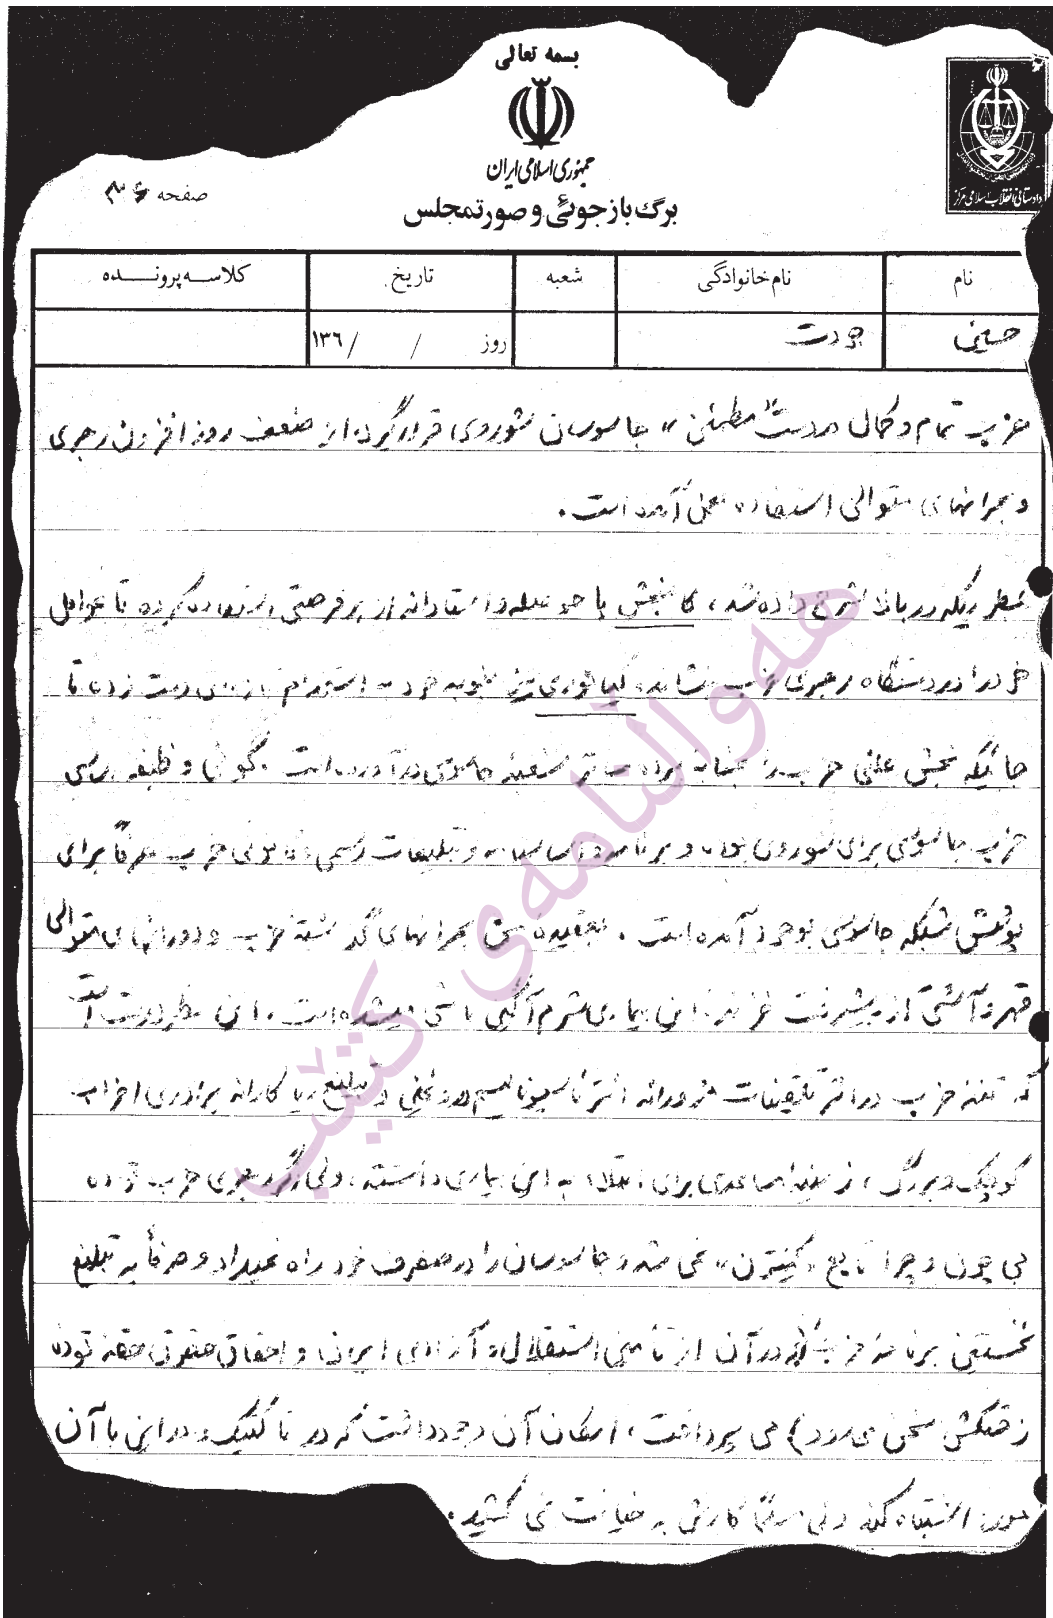 بسمه تعالی
جمهوری اسلامی ایران
دادستانی انقلاب اسلامی مرکز
صفحه ۳۶
برگ بازجوئی و صورتمجلس
نام نام خانوادگی شعبه تاریخ کلاسه پرونده
حسین جودت روز / / ۱۳۶
حزب تمام و کمال در دست "مطمئن" جاسوسان شوروی قرار گیرد، از ضعف روزافزون رهبری
و بحرانهای متوالی استفاده بعمل آمده است.
بطریکه در بالا شرح داده شد، کامبخش با حوصله و استادانه از هر فرصتی استفاده کرده تا عوامل
خود را در دستگاه رهبری حزب بنشاند. کیانوری نیز بنوبه خود به استخدام دست زده تا
جائیکه بخش علنی حزب را در آورده است. گوئی وظیفه رسمی
حزب جاسوسی برای شوروی بوده و برنامه و اساسنامه و تبلیغات رسمی و قانونی حزب صرفاً برای
پوشش شبکه جاسوسی بوجود آمده است. بعقیده من بحرانهای گذشته حزب و دورانهای متوالی
قهر و آشتی از پیشرفت خزنده این بیماری شرم آگین ناشی میشده است. این مطلب درست است
که تنه حزب در اثر تلقینات مزورانه انترناسیونالیسم دروغین و تبلیغ ریاکارانه برادری احزاب
کوچک و بزرگ، زمینه مساعدی برای ابتلاء به این بیماری داشته، ولی اگر رهبری حزب توده
بی چون و چرا تابع "کمینترن" نمی شد و جاسوسان را در صفوف خود راه نمیداد و صرفاً به تبلیغ
نخستین برنامه حزب (که در آن از تأمین استقلال و آزادی ایران و احقاق حقوق حقه توده
زحمتکش سخن می رود) می پرداخت، امکان آن وجود داشت که در تاکتیک و در این یا آن
مورد اشتباه کند ولی مسلماً کارش به خیانت نمی کشید.
هەواڵنامەی کتێب